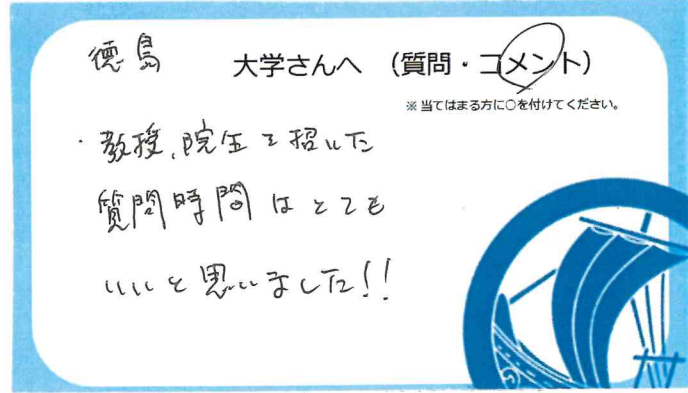 徳島 大学さんへ (質問・コメント)
※ 当てはまる方に○を付けてください。
・教授、院生を招いた
質問時間はとても
いいと思いました!!